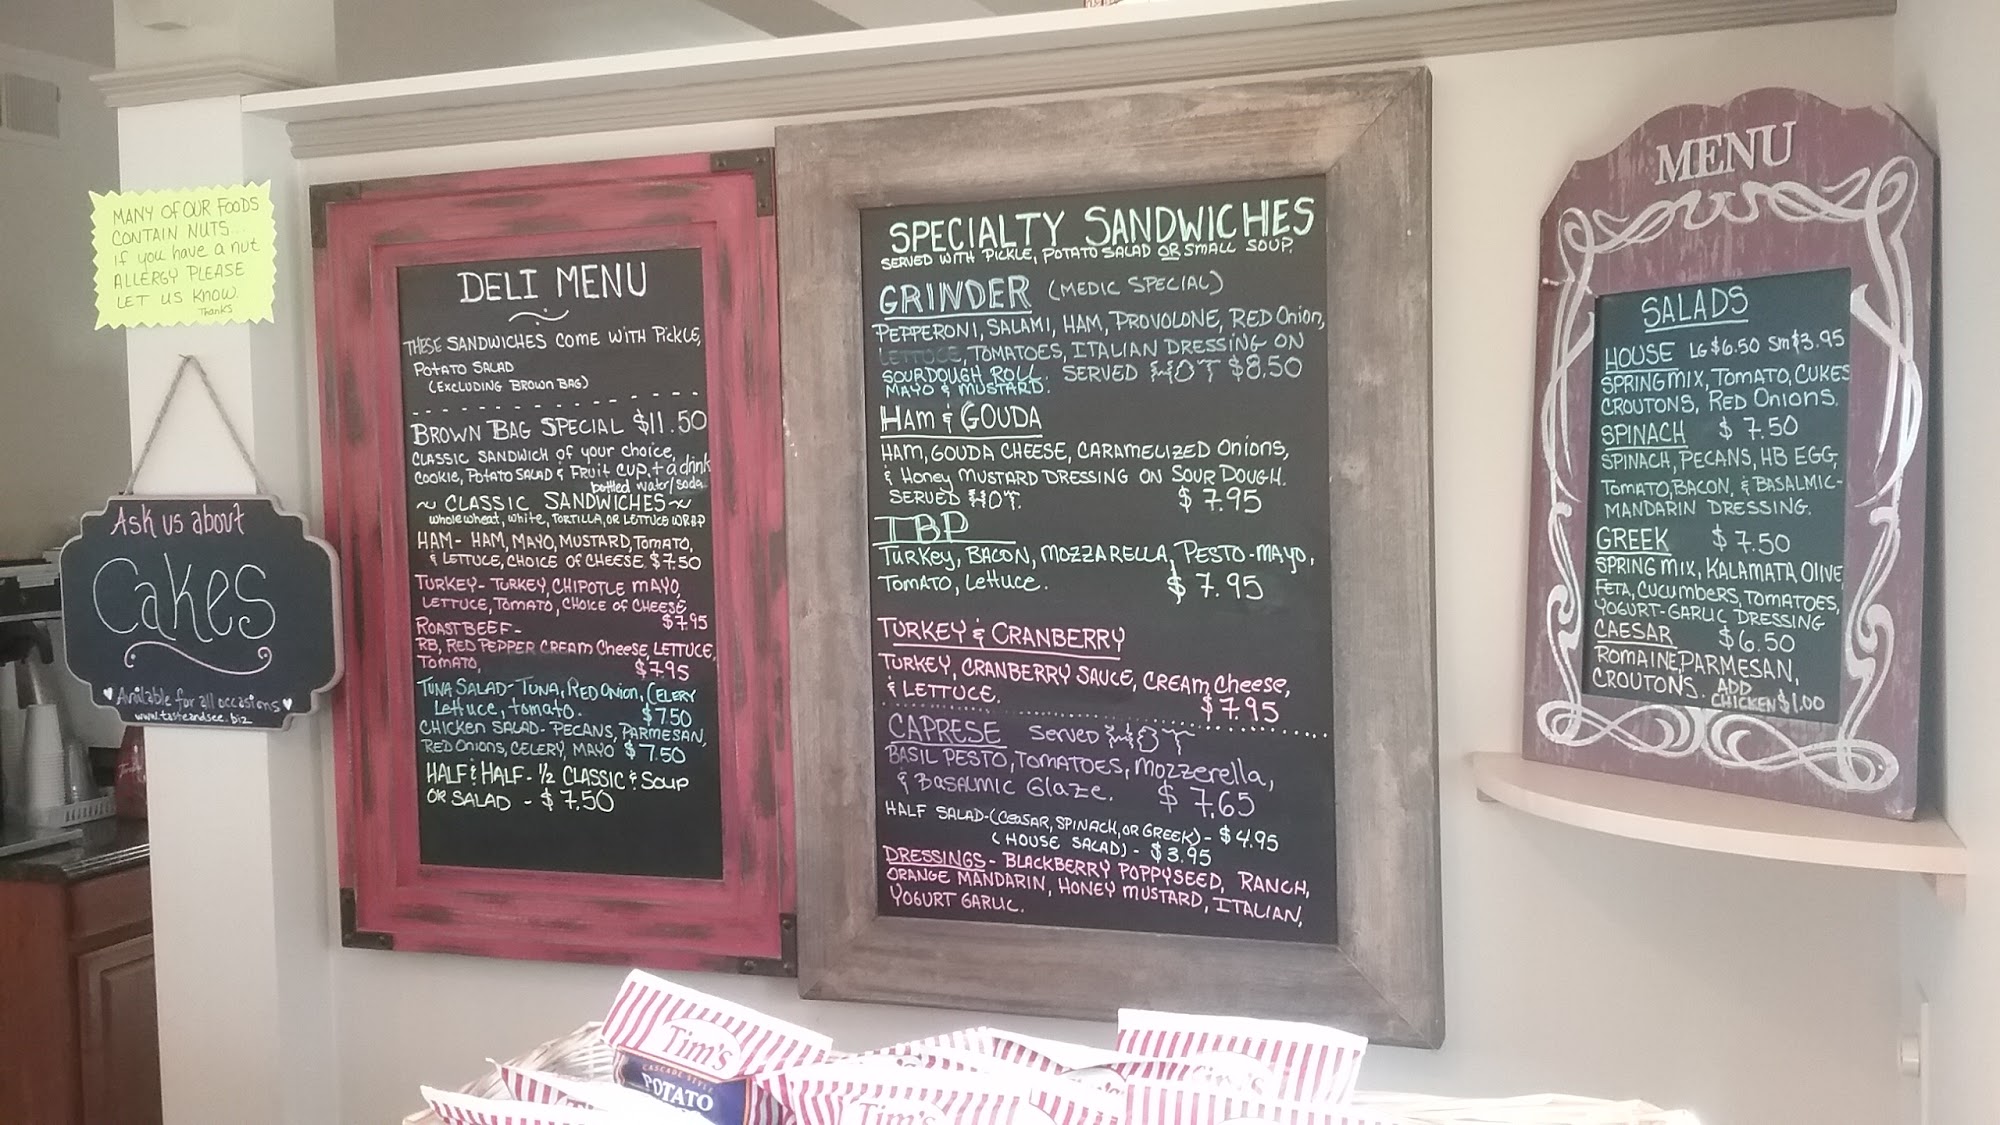 MANY OF OUR FOODS
CONTAIN NUTS...
if you have a nut
ALLERGY PLEASE
LET US KNOW.
Thanks
Ask us about
Cakes
Available for all occasions
www.tasteandsee.biz
DELI MENU
THESE SANDWICHES COME WITH PICKLE,
POTATO SALAD
(EXCLUDING BROWN BAG)
BROWN BAG SPECIAL $11.50
CLASSIC SANDWICH of your choice,
COOKIE, POTATO SALAD & FRUIT CUP, + a drink
bottled water/soda
~ CLASSIC SANDWICHES ~
whole wheat, white, TORTILLA, OR LETTUCE WRAP
HAM - HAM, MAYO, MUSTARD, TOMATO,
& LETTUCE, CHOICE OF CHEESE. $7.50
TURKEY - TURKEY, CHIPOTLE MAYO,
LETTUCE, TOMATO, CHOICE OF CHEESE
$7.95
ROAST BEEF -
RB, RED PEPPER CREAM CHEESE, LETTUCE,
TOMATO, $7.95
TUNA SALAD - TUNA, RED ONION, CELERY
Lettuce, tomato. $7.50
CHICKEN SALAD - PECANS, PARMESAN,
RED ONIONS, CELERY, MAYO $7.50
HALF & HALF - 1/2 CLASSIC & SOUP
OR SALAD - $7.50
SPECIALTY SANDWICHES
SERVED WITH PICKLE, POTATO SALAD OR SMALL SOUP.
GRINDER (MEDIC SPECIAL)
PEPPERONI, SALAMI, HAM, PROVOLONE, RED ONION,
LETTUCE, TOMATOES, ITALIAN DRESSING ON
SOURDOUGH ROLL. SERVED HOT $8.50
MAYO & MUSTARD.
HAM & GOUDA
HAM, GOUDA CHEESE, CARAMELIZED ONIONS,
& HONEY MUSTARD DRESSING ON SOUR DOUGH.
SERVED HOT. $7.95
TBP
TURKEY, BACON, MOZZARELLA, PESTO-MAYO,
TOMATO, LETTUCE. $7.95
TURKEY & CRANBERRY
TURKEY, CRANBERRY SAUCE, CREAM CHEESE,
& LETTUCE. $7.95
CAPRESE SERVED HOT
BASIL PESTO, TOMATOES, MOZZERELLA,
& BASALMIC GLAZE. $7.65
HALF SALAD - (CEASAR, SPINACH, OR GREEK) - $4.95
(HOUSE SALAD) - $3.95
DRESSINGS - BLACKBERRY POPPYSEED, RANCH,
ORANGE MANDARIN, HONEY MUSTARD, ITALIAN,
YOGURT GARLIC.
MENU
SALADS
HOUSE LG $6.50 Sm $3.95
SPRING MIX, TOMATO, CUKES
CROUTONS, RED ONIONS.
SPINACH $7.50
SPINACH, PECANS, HB EGG,
TOMATO, BACON, & BASALMIC-
MANDARIN DRESSING.
GREEK $7.50
SPRING MIX, KALAMATA OLIVE
FETA, CUCUMBERS, TOMATOES,
YOGURT-GARLIC DRESSING
CAESAR $6.50
ROMAINE, PARMESAN,
CROUTONS. ADD
CHICKEN $1.00
Tim's
CASCADE STYLE
POTATO
Tim's
Tim's